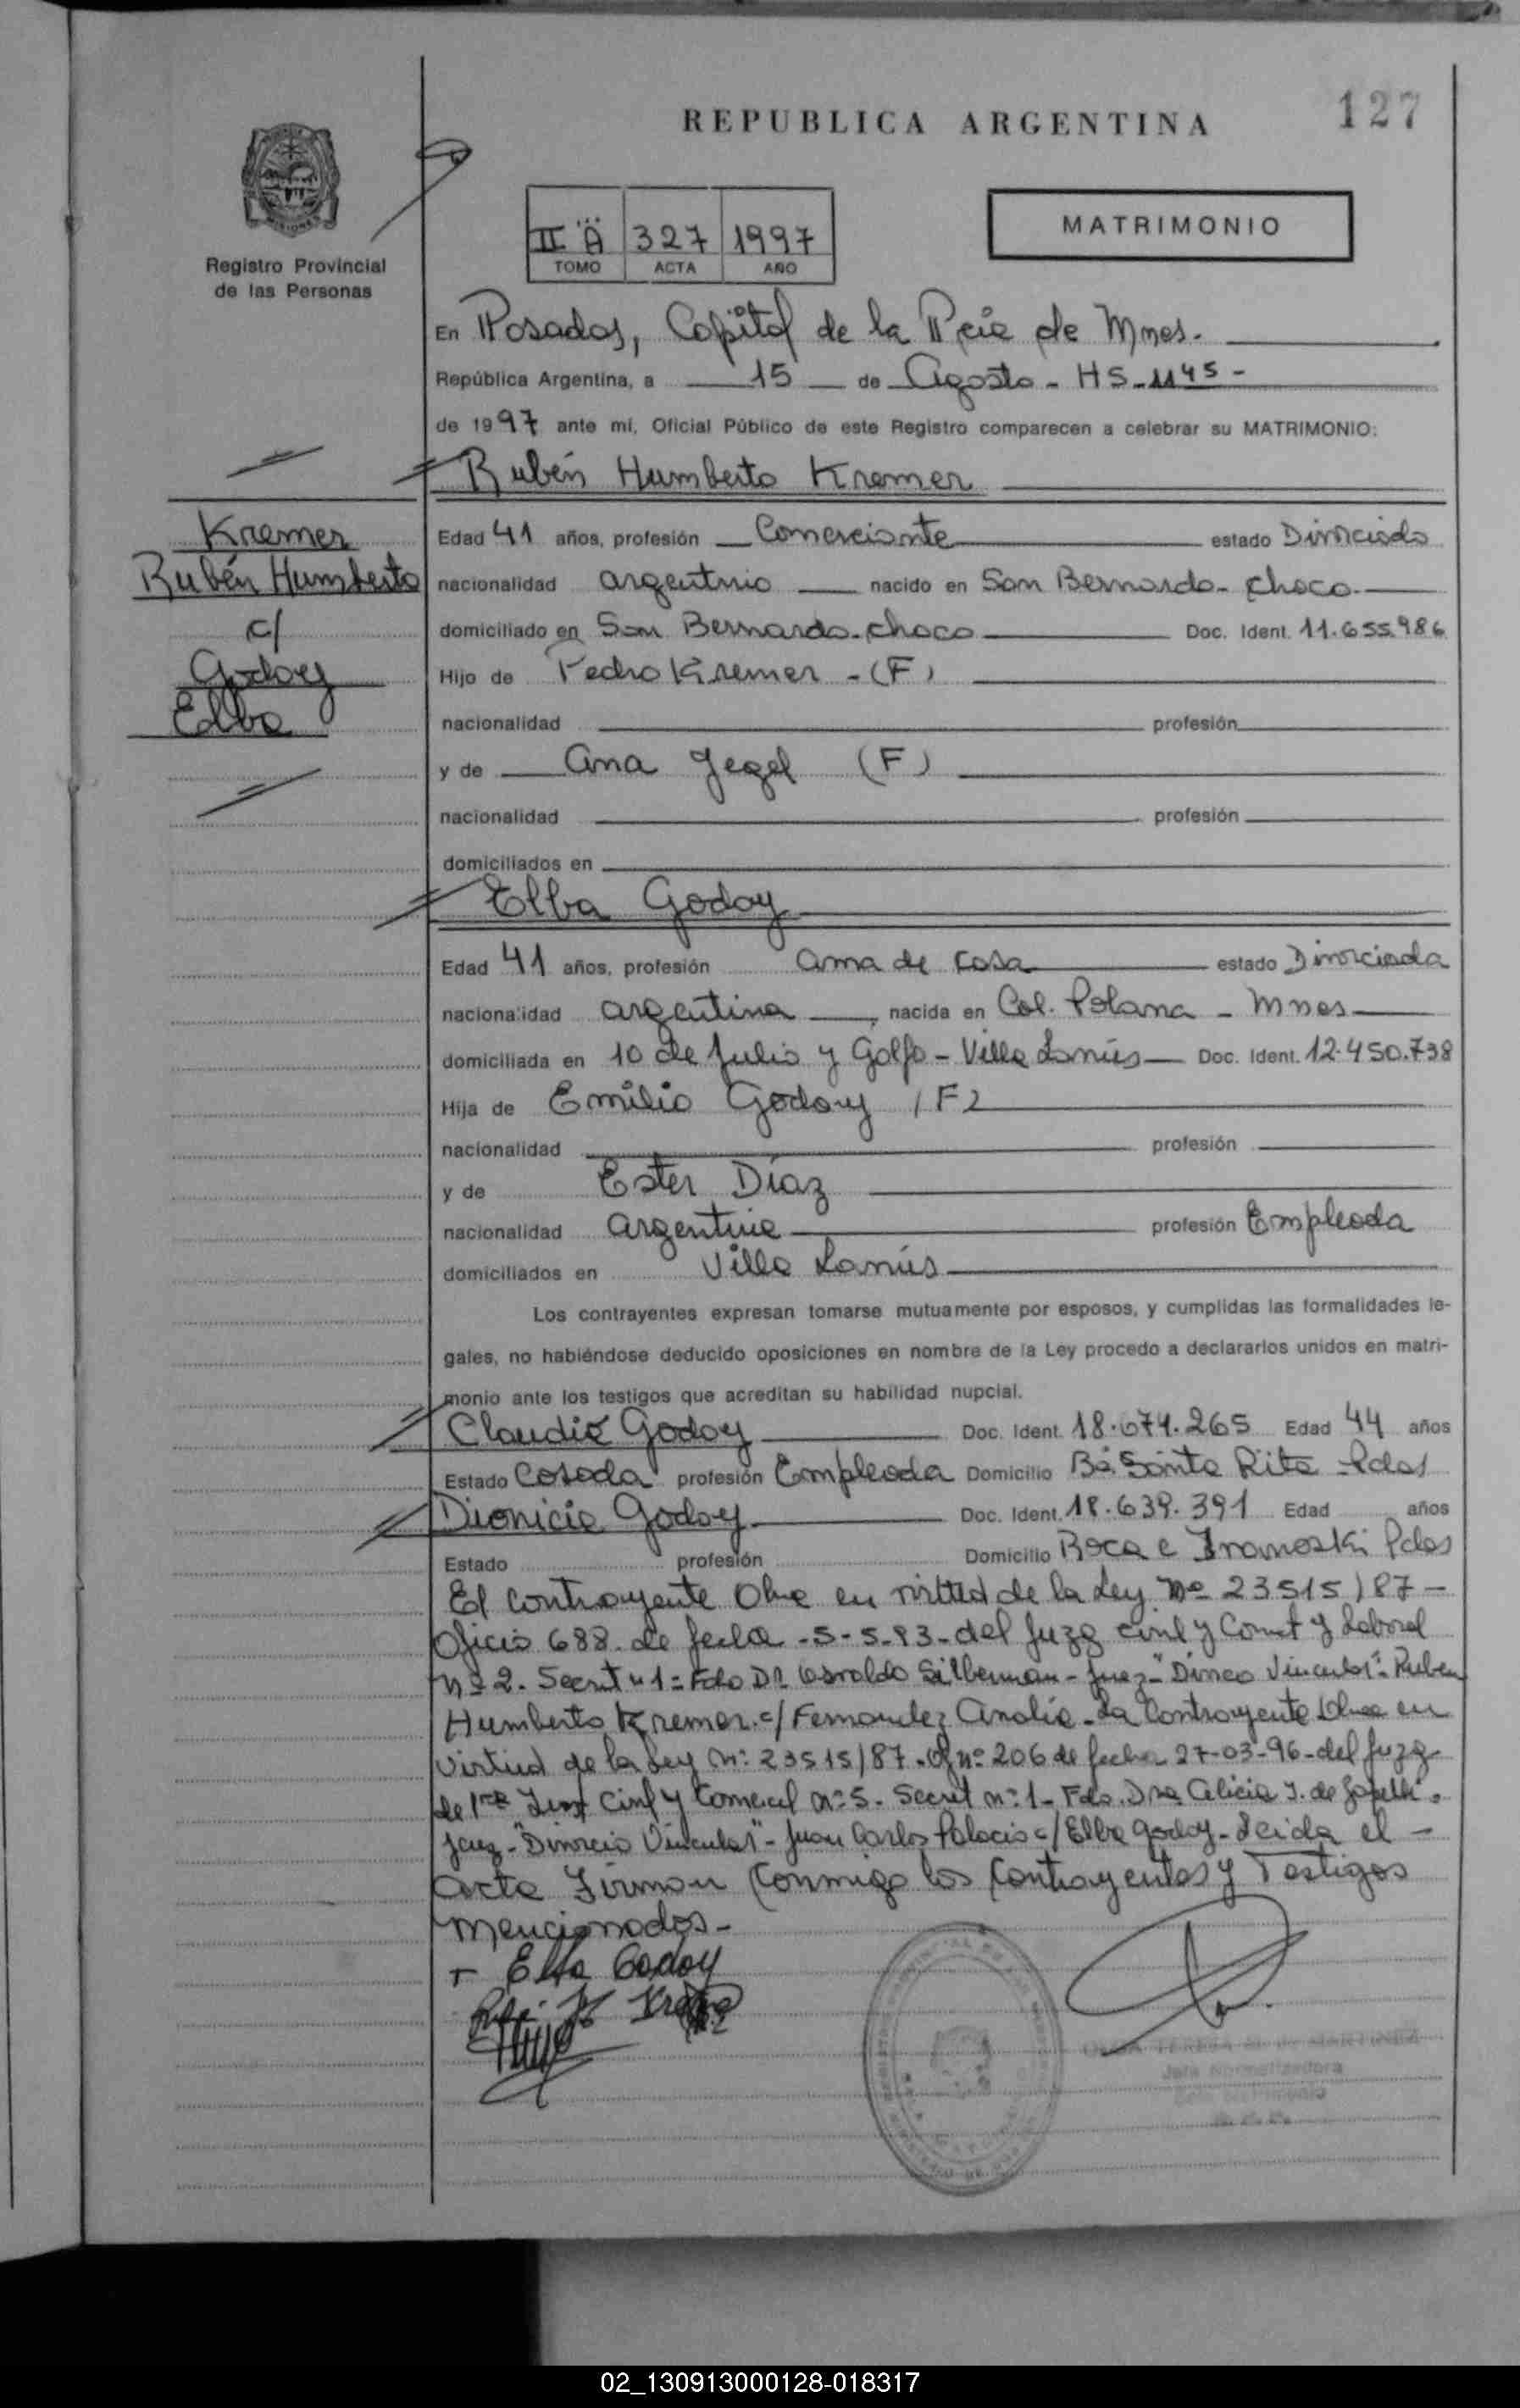 REPUBLICA ARGENTINA
127
Registro Provincial
de las Personas
II A 327 1997
TOMO ACTA AÑO
MATRIMONIO
En Posadas, Capital de la Pcia de Mnes.
República Argentina, a 15 de Agosto - HS - 1145 -
de 1997 ante mí, Oficial Público de este Registro comparecen a celebrar su MATRIMONIO:
Rubén Humberto Kremer
Kremer
Rubén Humberto
c/
Godoy
Elba
Edad 41 años, profesión Comerciante estado Divorciado
nacionalidad argentino nacido en San Bernardo - Chaco
domiciliado en San Bernardo - Chaco Doc. Ident. 11.655.986
Hijo de Pedro Kremer - (F)
nacionalidad profesión
y de Ana Jegel (F)
nacionalidad profesión
domiciliados en
Elba Godoy
Edad 41 años, profesión ama de casa estado Divorciada
nacionalidad argentina, nacida en Col. Polana - Mnes
domiciliada en 10 de Julio y Golfo - Villa Lanús Doc. Ident. 12.450.738
Hija de Emilio Godoy (F)
nacionalidad profesión
y de Ester Díaz
nacionalidad Argentina profesión Empleada
domiciliados en Villa Lanús
Los contrayentes expresan tomarse mutuamente por esposos, y cumplidas las formalidades le-
gales, no habiéndose deducido oposiciones en nombre de la Ley procedo a declararlos unidos en matri-
monio ante los testigos que acreditan su habilidad nupcial.
Claudia Godoy Doc. Ident. 18.074.265 Edad 44 años
Estado Casada profesión Empleada Domicilio Bº Santa Rita - Pdas
Dionicia Godoy Doc. Ident. 18.639.391 Edad años
Estado profesión Domicilio Roca e Iranoski Pdas
El contrayente Obra en virtud de la Ley Nº 23515/87 -
Oficio 688 de fecha - 5-5-93 - del Juzg Civil y Comet y Laboral
nº 2. Secret nº 1 - Fdo Dr Osvaldo Silberman - Juez - "Divorcio Vincular" - Ruben
Humberto Kremer c/ Fernandez Analia - La Contrayente Obra en
virtud de la Ley Nº 23515/87 - Of nº 206 de fecha 27-03-96 - del Juzg
de 1ra Inst Civil y Comercial nº 5. Secret nº 1 - Fdo. Dra Alicia J. de
Juez - "Divorcio Vincular" - Juan Carlos Palacio c/ Elba Godoy - Leida el -
acta Firman Conmigo los Contrayentes y Testigos
mencionados -
Elba Godoy
Jefa Normalizadora
02_130913000128-018317